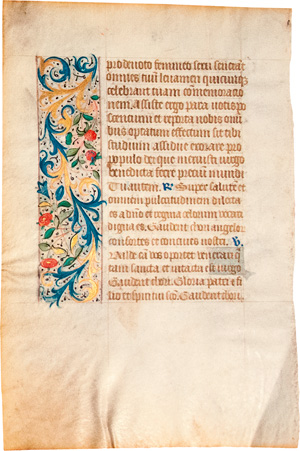 pro devoto femineo sexu sentiat
omnes tuū levamen quicūqʒ
celebrant tuam comemoratio
nem. Assiste ergo parata votis po
scentium et reporta nobis omi
bus optatum effectum sit tibi
studium assidue exorare pro
populo dei que meruisti virgo
benedicta ferre precium mundi
Tu autem. R Super salutē et
omnem pulcritudinem dilecta
es a dn̄o et regina celorum vocari
digna es. Gaudent chori angelor
consortes et concives nostri. V
Valde eā nos oportet venerari q̄
tam sancta et intacta est virgo
Gaudent chori. Gloria patri et fi
lio et spiritui sc̄o. Gaudent chori.